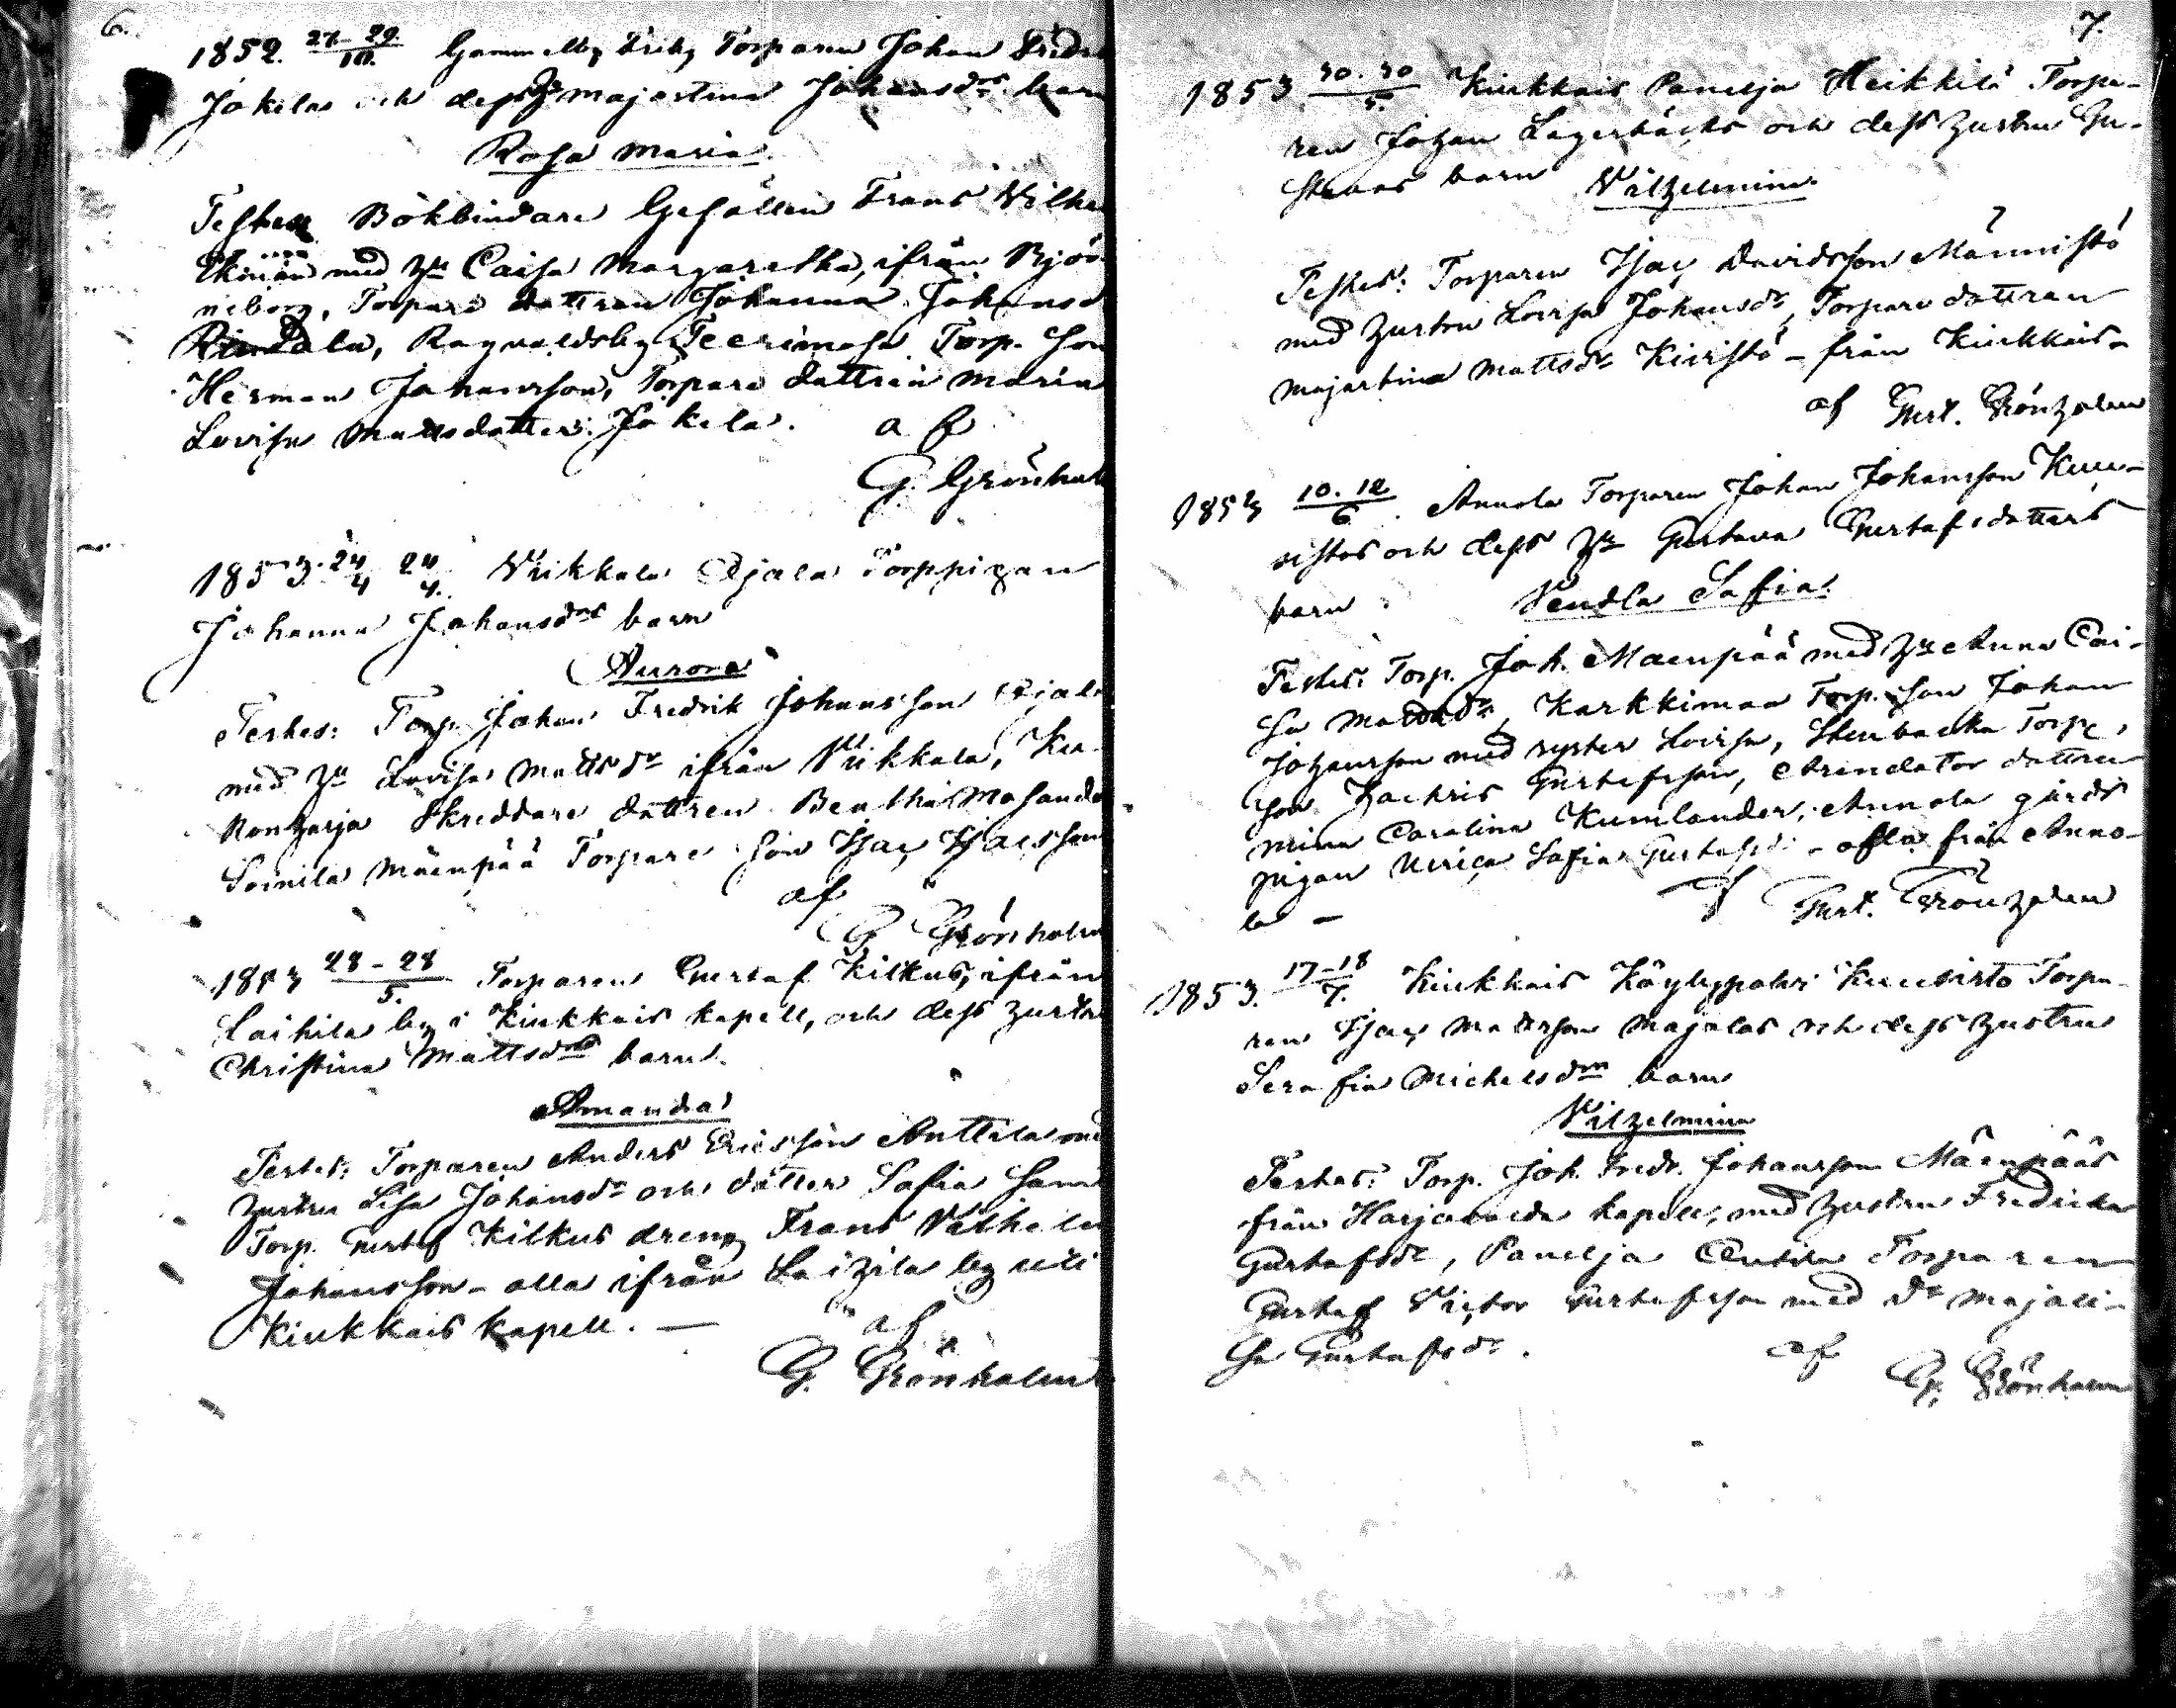 6.
1852. 27-29/10. Gammelby Friby Torparen Johan Fredr
Jokelas och dess H majastina Johansdrs barn
Rosa maria.
Testes Bökbindare Gesällen Frans Wilhe
Ekman med H Caisa Margaretha, ifrån Björ
neborg, Torpare dottren Johanna Johansd
Rindala, Ragvaldsby Teerimasa Torp. Son
Herman Johansson, Torpare dattren maria
Lovisa Mattsdotter Jokela. af
G. Grönhol
1853. 24/4 24/4. Wiikkala Ojala Torppigan
Johanna Johansdrs barn
Aurora
Testes: Torp. Johan Fredrik Johansson Ojala
med H Lovisa Mattsdr ifrån Viikkala, Kra
Ronharja Skreddare dattren Bentha
Somila Mäenpää Torpare Son Isac Isacsson
af
G. Grönholm
1853 28-28/5. Torparen Gustaf Kilkus, ifrån
Laihila by i Kiukkais kapell, och dess hustru
Christina Mattsdrs barn.
Amanda
Testes: Torparen Anders Ericsson Anttila med
hustru Lisa Johansdr och dotter Safia samt
Torp. Gustaf Kilkus dreng Frans Vilhelm
Johansson - alla ifrån Laihila by uti
Kiukkais kapell. —
af
G. Grönholm
7.
1853 30.30/5. Kiukkais Panelja Heikkilä Torpa-
ren Johan Lagerbäcks och dess hustru Gu-
stavas barn Vilhelmina.
Testes: Torparen Isac Davidsson Männistö
med hustru Lovisa Johansdr, Torpare dottren
Majastina Mattsdr Kivistö - från Kiukkais-
af Gust. Grönholm
1853 10.12/6. Annola Torparen Johan Johansson Kuu-
sistos och dess H Gustava Gustafsdotters
barn Vendla Safia.
Testes: Torp. Joh. Maenpää med H Anna Cai-
sa Mattsdr, Karkkimaa Torp. son Johan
Johansson med syster Lovisa, Stenbacka Torp.
son Zachris Gustafsson, Arendator dottren
mina Carolina Kumlander, Annola gårds
pigan Ulrica Safia Gustafsdr - alla från Anno-
la -
af Gust. Grönholm
1853. 17-18/7. Kiukkais Köylypolvi Kuusisto Torpa-
ren Isac Mattsson Majalas och dess hustru
Serafia Michelsdrs barn
Vilhelmina
Testes: Torp. Joh. Fredr. Johansson Mäenpääs
från Harjavalda kapell, med hustru Fredrika
Gustafsdr, Panelja Anttila Torparen
Gustaf Victor Gustafsson med Dr Majali-
sa Gustafsdr.
af
G. Grönholm